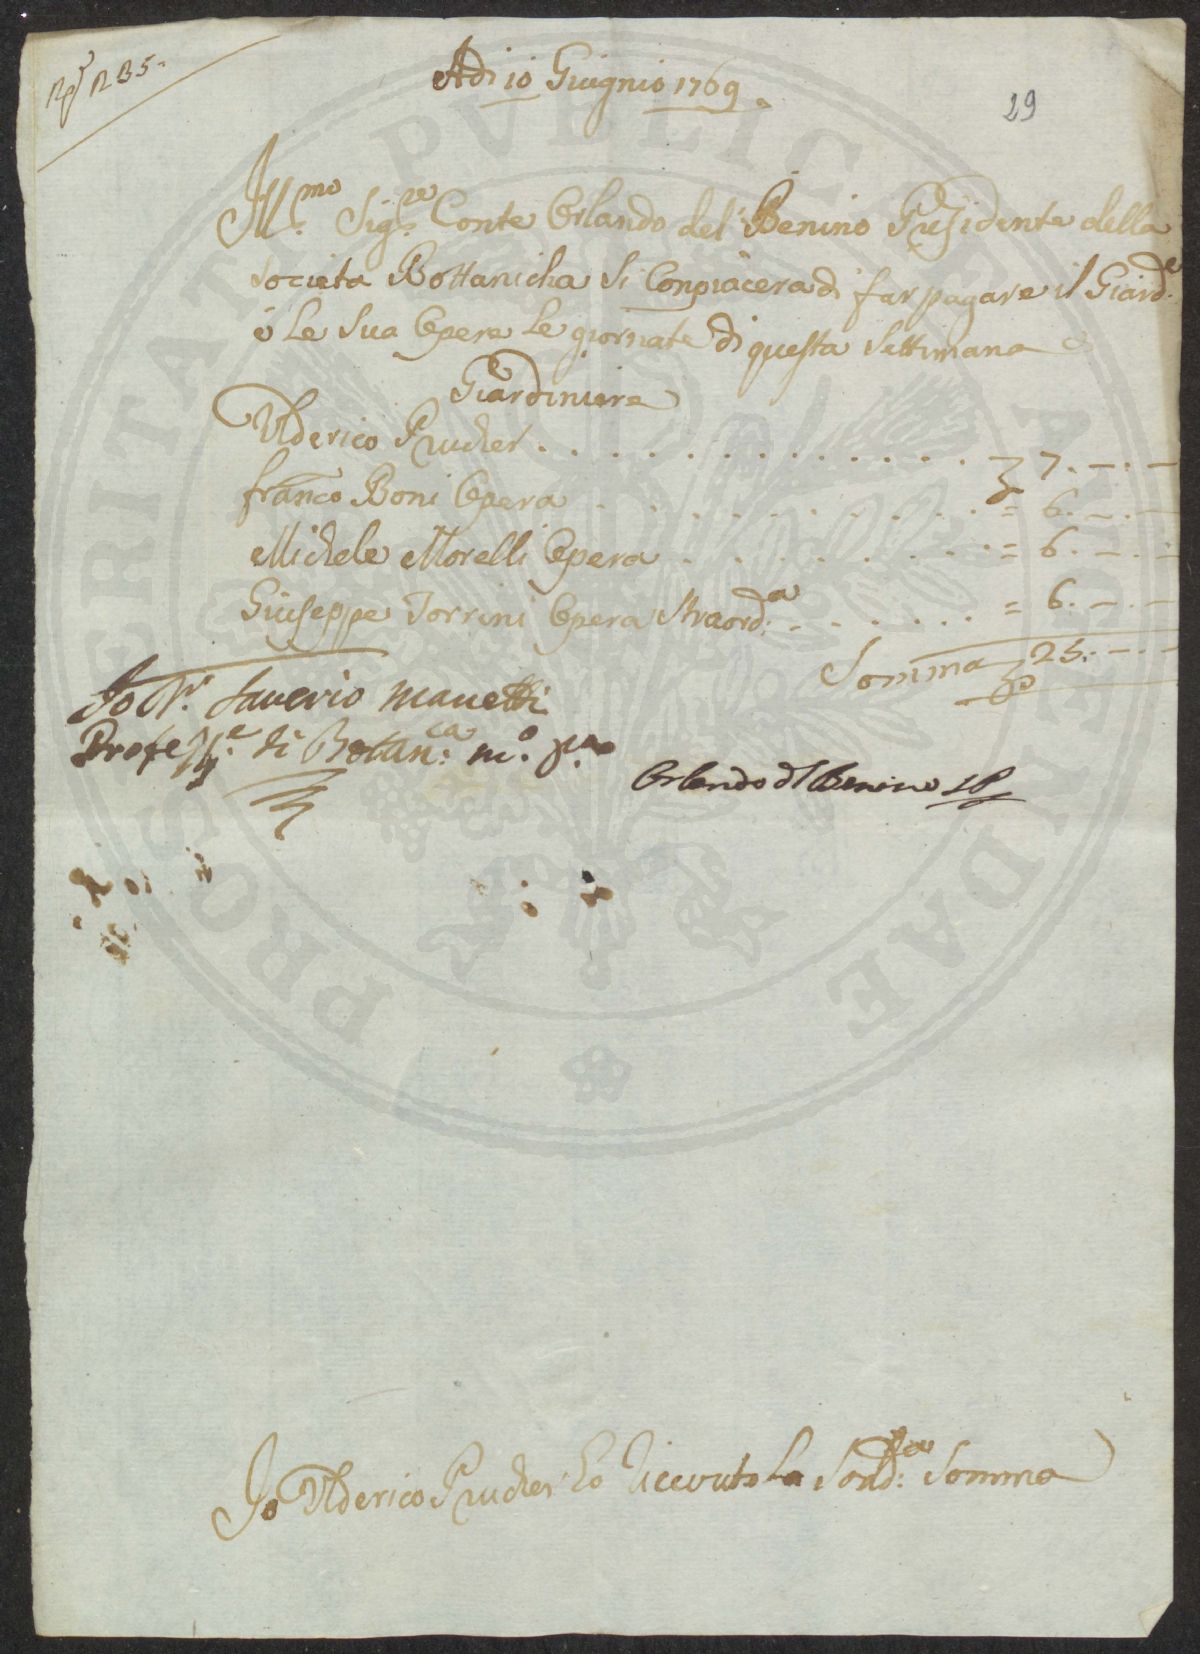 Adi 10 Giugnio 1769
29
Ill.mo Sig.re Conte Orlando del Benino Presidente della
Societa Bottanicha Si Conpiacera di far pagare il Giard.e
é Le Sua Opere Le giornate di questa Settimana
Giardiniere
Ulderico Prucher . . . . . . . . . . . . . . 7. — . —
franco Boni Opera . . . . . . . . . . = 6. — . —
Michele Morelli Opera . . . . . . . = 6. — . —
Giuseppe Torrini Opera Straord.a . . . . . . = 6. — . —
Somma 25. — . —
Io Saverio Manetti
Profess.e di Botan.ca m.o p.a
Orlando del Benino
Io Ulderico Prucher ò riceuto La Sod.a Somma
PROSPERITATI PVBLICAE AVGENDAE